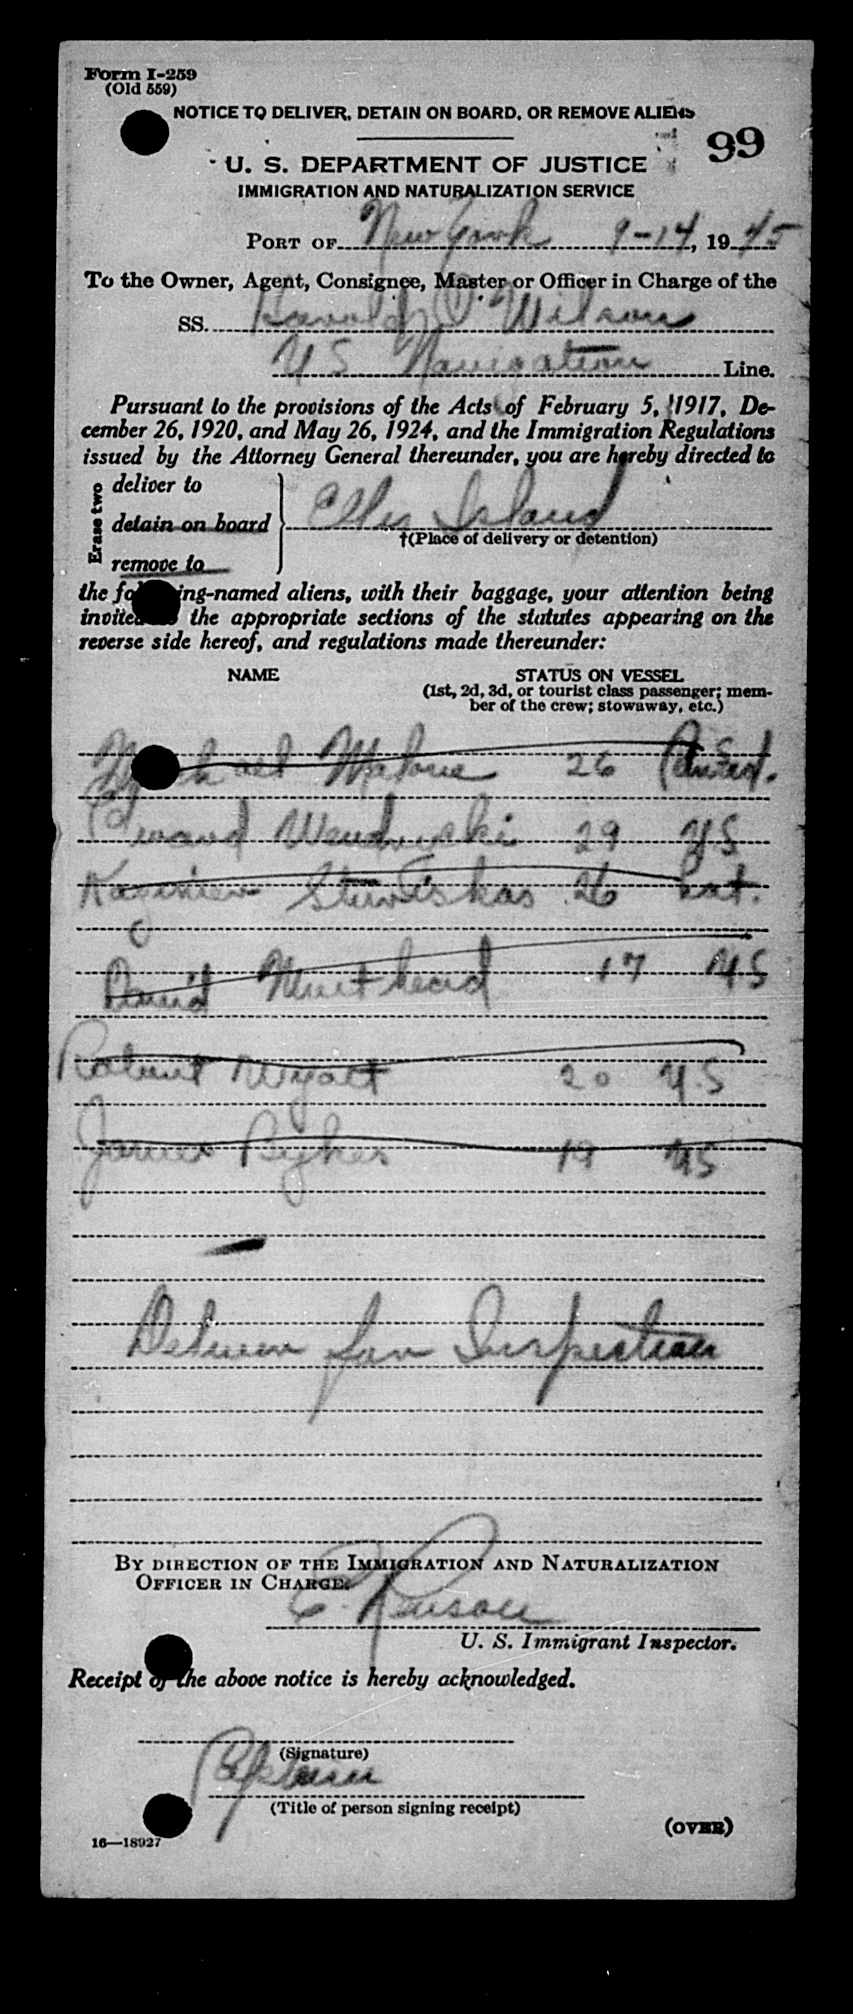 Form I-259
(Old 559)
NOTICE TO DELIVER, DETAIN ON BOARD, OR REMOVE ALIENS
99
U. S. DEPARTMENT OF JUSTICE
IMMIGRATION AND NATURALIZATION SERVICE
PORT OF New York 9-14, 1945
To the Owner, Agent, Consignee, Master or Officer in Charge of the
SS. Harold O. Wilson
US Navigation Line.
Pursuant to the provisions of the Acts of February 5, 1917, De-
cember 26, 1920, and May 26, 1924, and the Immigration Regulations
issued by the Attorney General thereunder, you are hereby directed to
Erase two
deliver to
detain on board
remove to
Ellis Island
†(Place of delivery or detention)
the fo ing-named aliens, with their baggage, your attention being
invited the appropriate sections of the statutes appearing on the
reverse side hereof, and regulations made thereunder:
NAME STATUS ON VESSEL
(1st, 2d, 3d, or tourist class passenger; mem-
ber of the crew; stowaway, etc.)
Michael Malone 26
Edward 29 US
Kazimier 26 Lat.
David Muirhead 17 US
Robert Wyatt 20 US
James Bykes 19 US
for Inspection
BY DIRECTION OF THE IMMIGRATION AND NATURALIZATION
OFFICER IN CHARGE:
E.
U. S. Immigrant Inspector.
Receipt of the above notice is hereby acknowledged.
(Signature)
Captain
(Title of person signing receipt)
(OVER)
16—18927